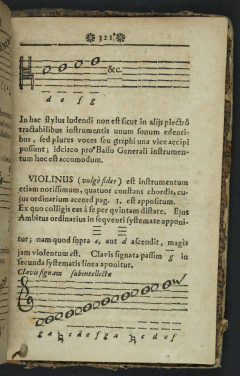 321
&c.
d e f g
In hac stylus ludendi non est sicut in alijs plectrô
tractabilibus instrumentis unum sonum edenti-
bus, sed plures voces seu griphi una vice accipi
possunt; idcirco pro Basso Generali instrumen-
tum hoc est accomodum.
VIOLINUS (vulgò fides) est instrumentum
etiam notissimum, quatuor constans chordis, cu-
jus ordinarium accord pag. 1. est appositum.
Ex quo colligis eas à se per quintam distare. Ejus
Ambitus ordinarius in sequenti systemate apponi-
tur; nam quod supra aut d ascendit, magis
jam violentum est. Clavis signata passim g in
secunda systematis linea aponitur.
Clavis signata subintellecta
g a ♮ c d e f g a ♮ c d e f